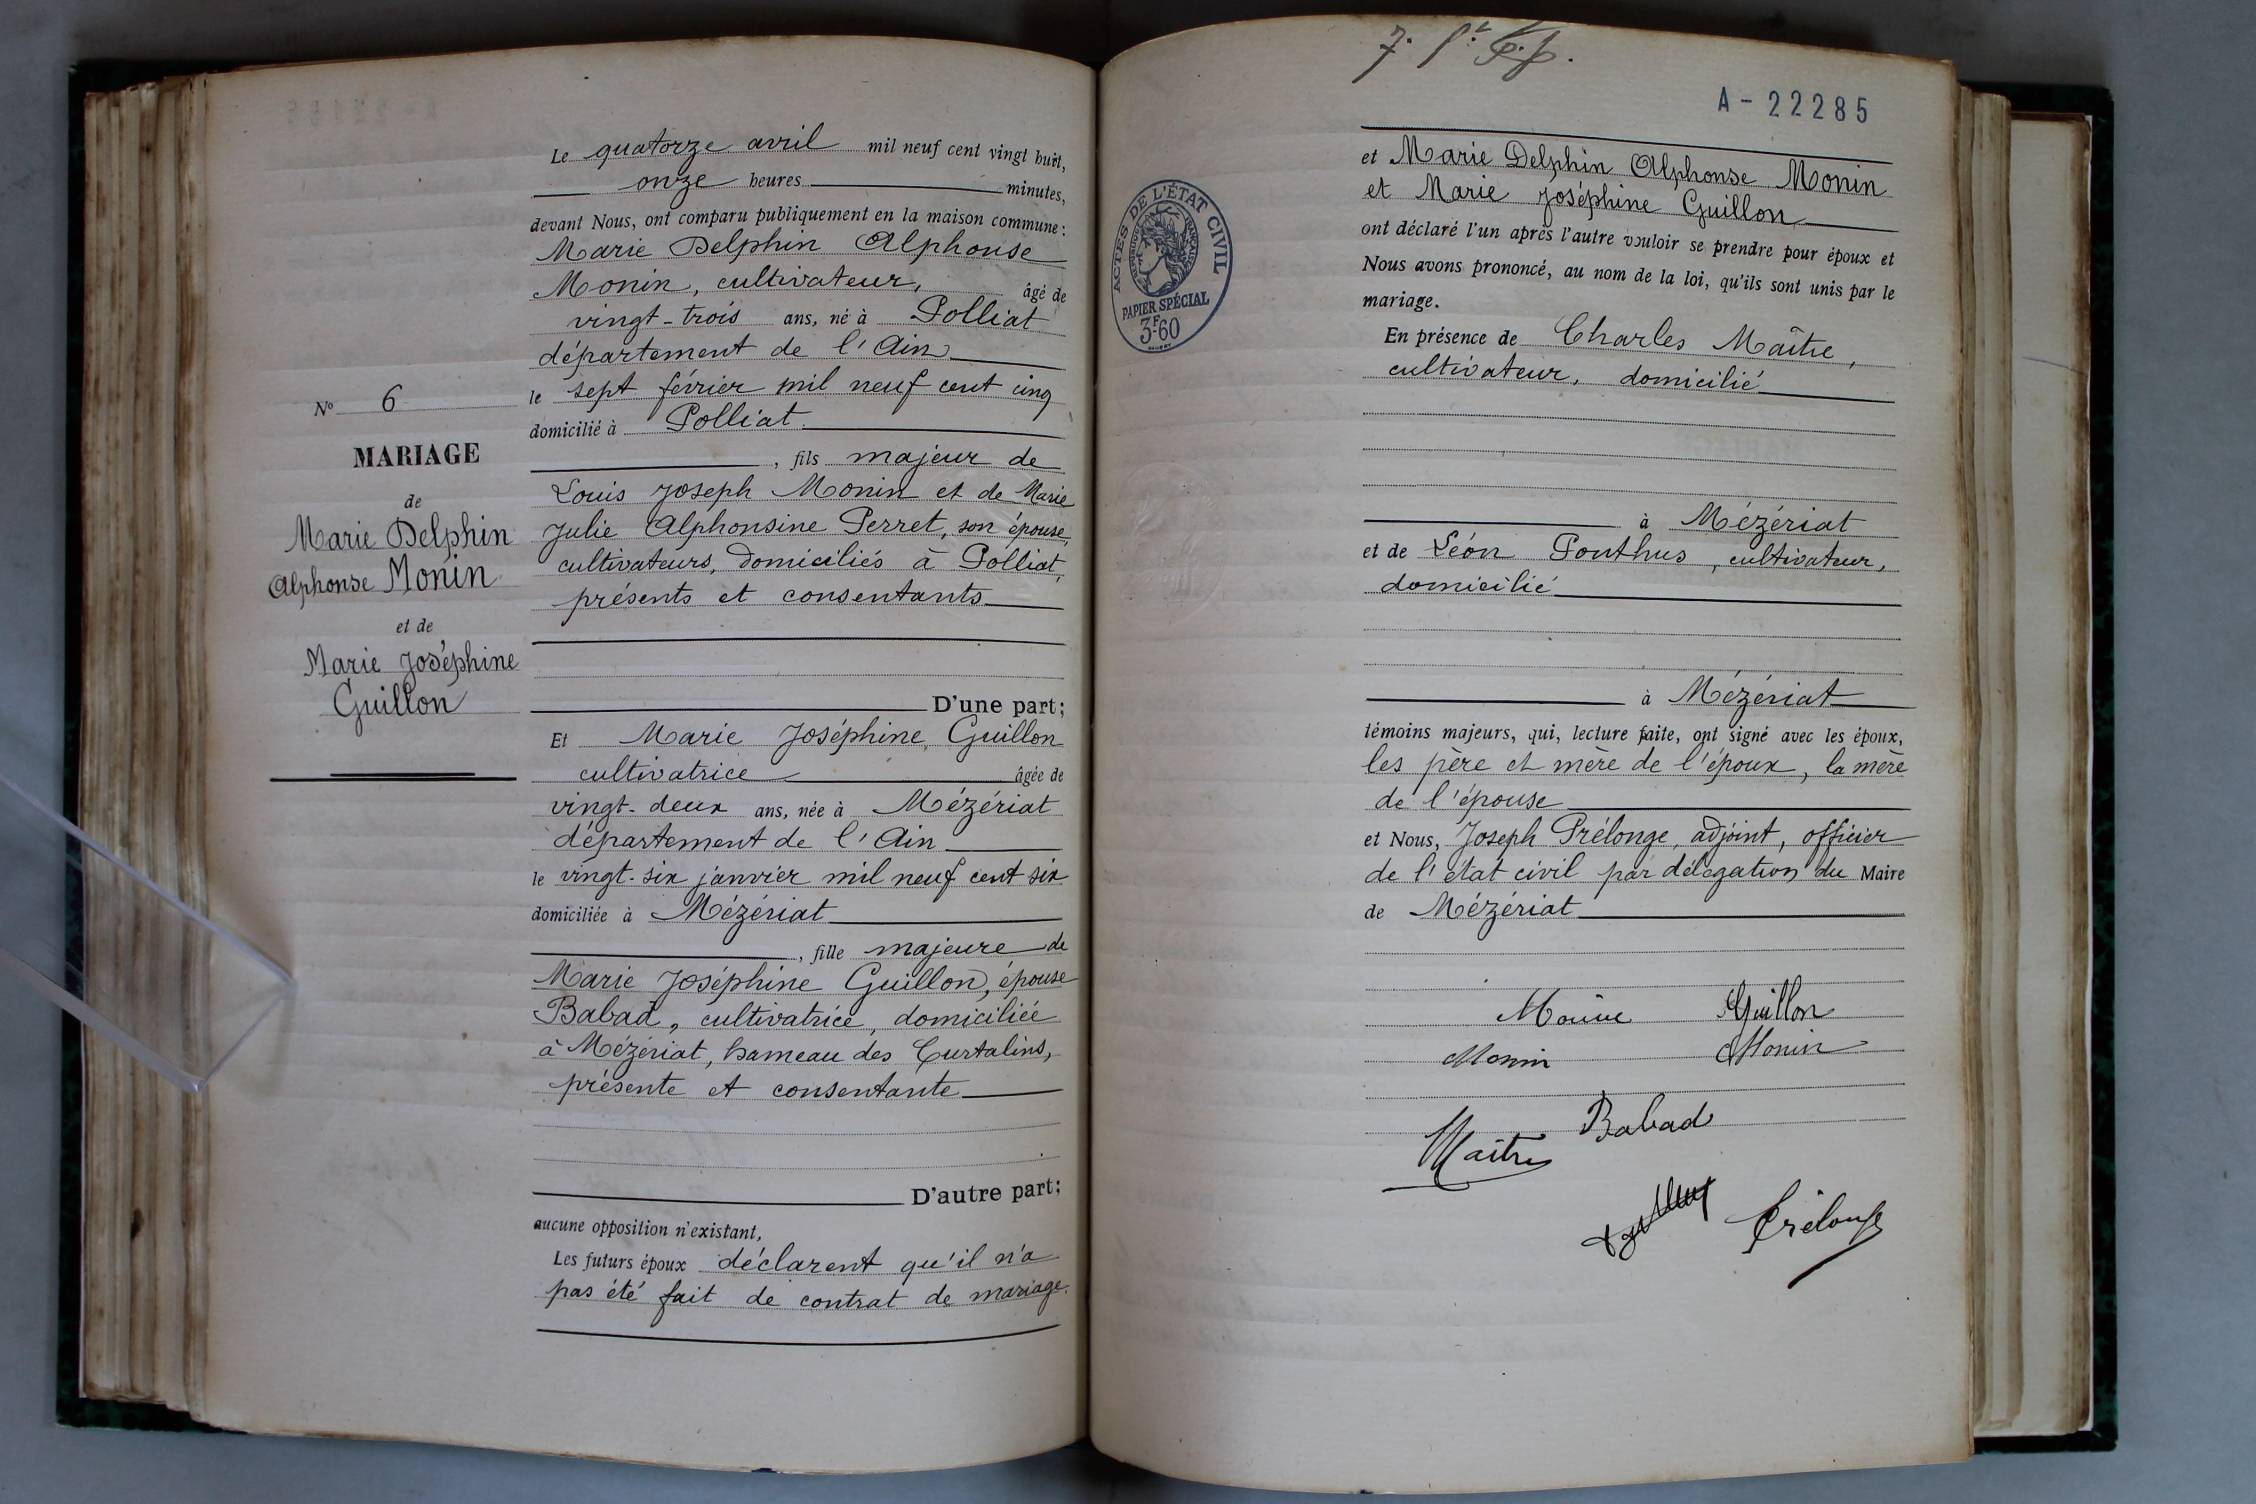 N° 6
MARIAGE
de
Marie Delphin
Alphonse Monin
et de
Marie Joséphine
Guillon
Le quatorze avril mil neuf cent vingt huit,
onze heures minutes,
devant Nous, ont comparu publiquement en la maison commune :
Marie Delphin Alphonse
Monin, cultivateur, âgé de
vingt-trois ans, né à Polliat
département de l'Ain
le sept février mil neuf cent cinq
domicilié à Polliat
, fils majeur de
Louis Joseph Monin et de Marie
Julie Alphonsine Perret, son épouse,
cultivateurs, domiciliés à Polliat,
présents et consentants
D'une part;
Et Marie Joséphine Guillon
cultivatrice âgée de
vingt-deux ans, née à Mézériat
département de l'Ain
le vingt-six janvier mil neuf cent six
domiciliée à Mézériat
, fille majeure de
Marie Joséphine Guillon, épouse
Babad, cultivatrice, domiciliée
à Mézériat, hameau des Curtalins,
présente et consentante
D'autre part;
aucune opposition n'existant,
Les futurs époux déclarent qu'il n'a
pas été fait de contrat de mariage.
A - 22285
ACTES DE L'ÉTAT CIVIL
RÉPUBLIQUE FRANÇAISE
PAPIER SPÉCIAL
3F60
et Marie Delphin Alphonse Monin
et Marie Joséphine Guillon
ont déclaré l'un après l'autre vouloir se prendre pour époux et
Nous avons prononcé, au nom de la loi, qu'ils sont unis par le
mariage.
En présence de Charles Maître,
cultivateur, domicilié
à Mézériat
et de Léon Ponthus, cultivateur,
domicilié
à Mézériat
témoins majeurs, qui, lecture faite, ont signé avec les époux,
les père et mère de l'époux, la mère
de l'épouse
et Nous, Joseph Prélonge, adjoint, officier
de l'état civil par délégation du Maire
de Mézériat
Monin Guillon
Monin Monin
Babad
Maître
Prélonge